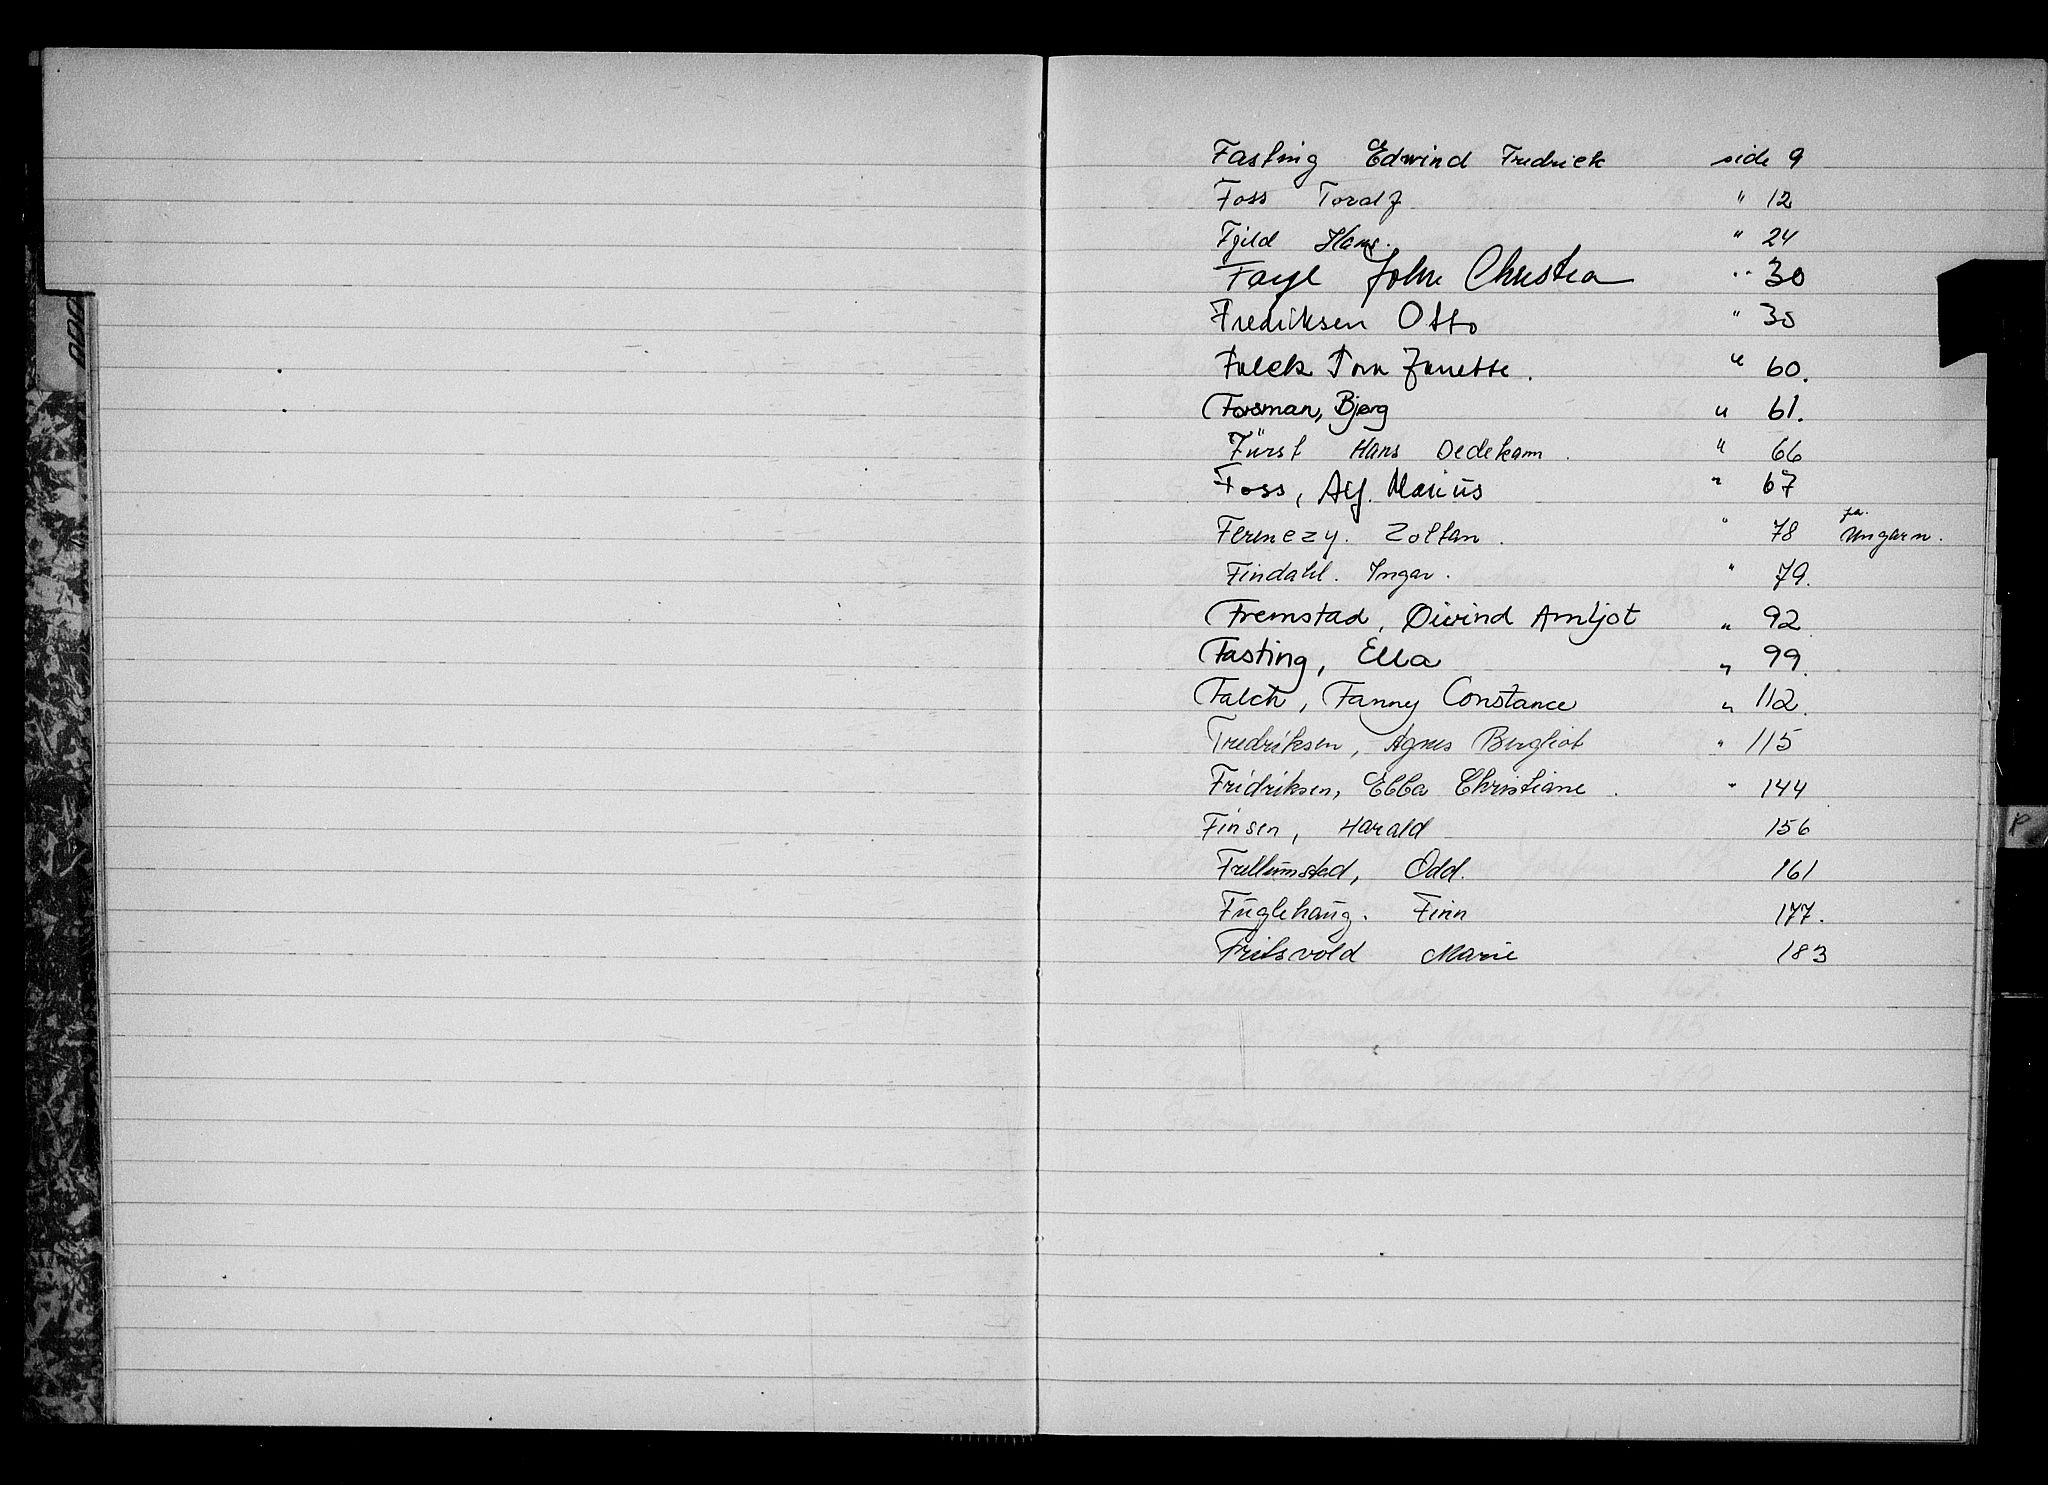 Fasting Edwind Fredrick side 9
Foss Toralf " 12
Fjild Hans. " 24
Faye John Christian " 30
Frediksen Otto " 30
Falck Tom Janette. " 60.
Forsman, Bjørg " 61.
Fürst Hans Dedekam. " 66
Foss, Alf. Marius " 67
Ferenczy. Zoltan. " 78 fra. Ungarn.
Findahl. Ingar. " 79.
Fremstad, Øivind Arnljot " 92
Fasting, Ella " 99.
Falch, Fanny Constance " 112.
Fredriksen, Agnes Bergliot " 115
Fridriksen, Ebba Christiane. " 144
Finsen, Harald 156
Frellumstad, Odd. 161
Fuglehaug. Finn 177.
Fritsvold Marie 183
P